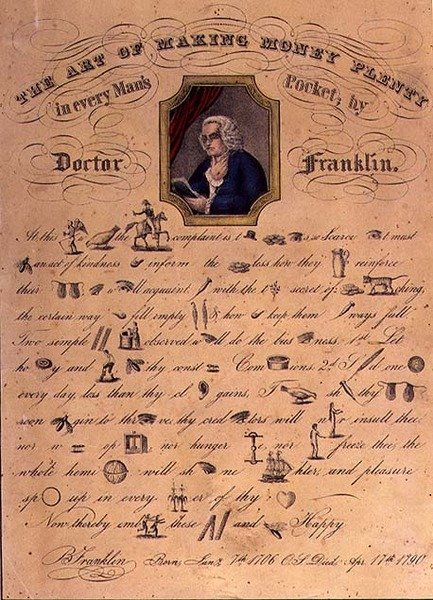 THE ART OF MAKING MONEY PLENTY
in every Man's Pocket; by
Doctor Franklin.
At this the complaint is t is so Scarce must
an act of kindness inform the less how they reinforce
their w ll acquaint with the t secret of ching,
the certain way fill empty & how keep them ways full
Two simple observed w ll do the bus ness. 1st Let
ho y and thy const Com ions. 2d S d one
every day, less than thy cl gains, T sh thy
soon gin to thr ve, thy cred tors will r insult thee
nor w op nor hunger nor freeze thee, the
whole hemi will sh ne hter, and pleasure
sp up in every er of thy
Now thereby emb these and Happy
B Franklin Born, Jany 7th 1706 O.S. Died Apr 17th 1790